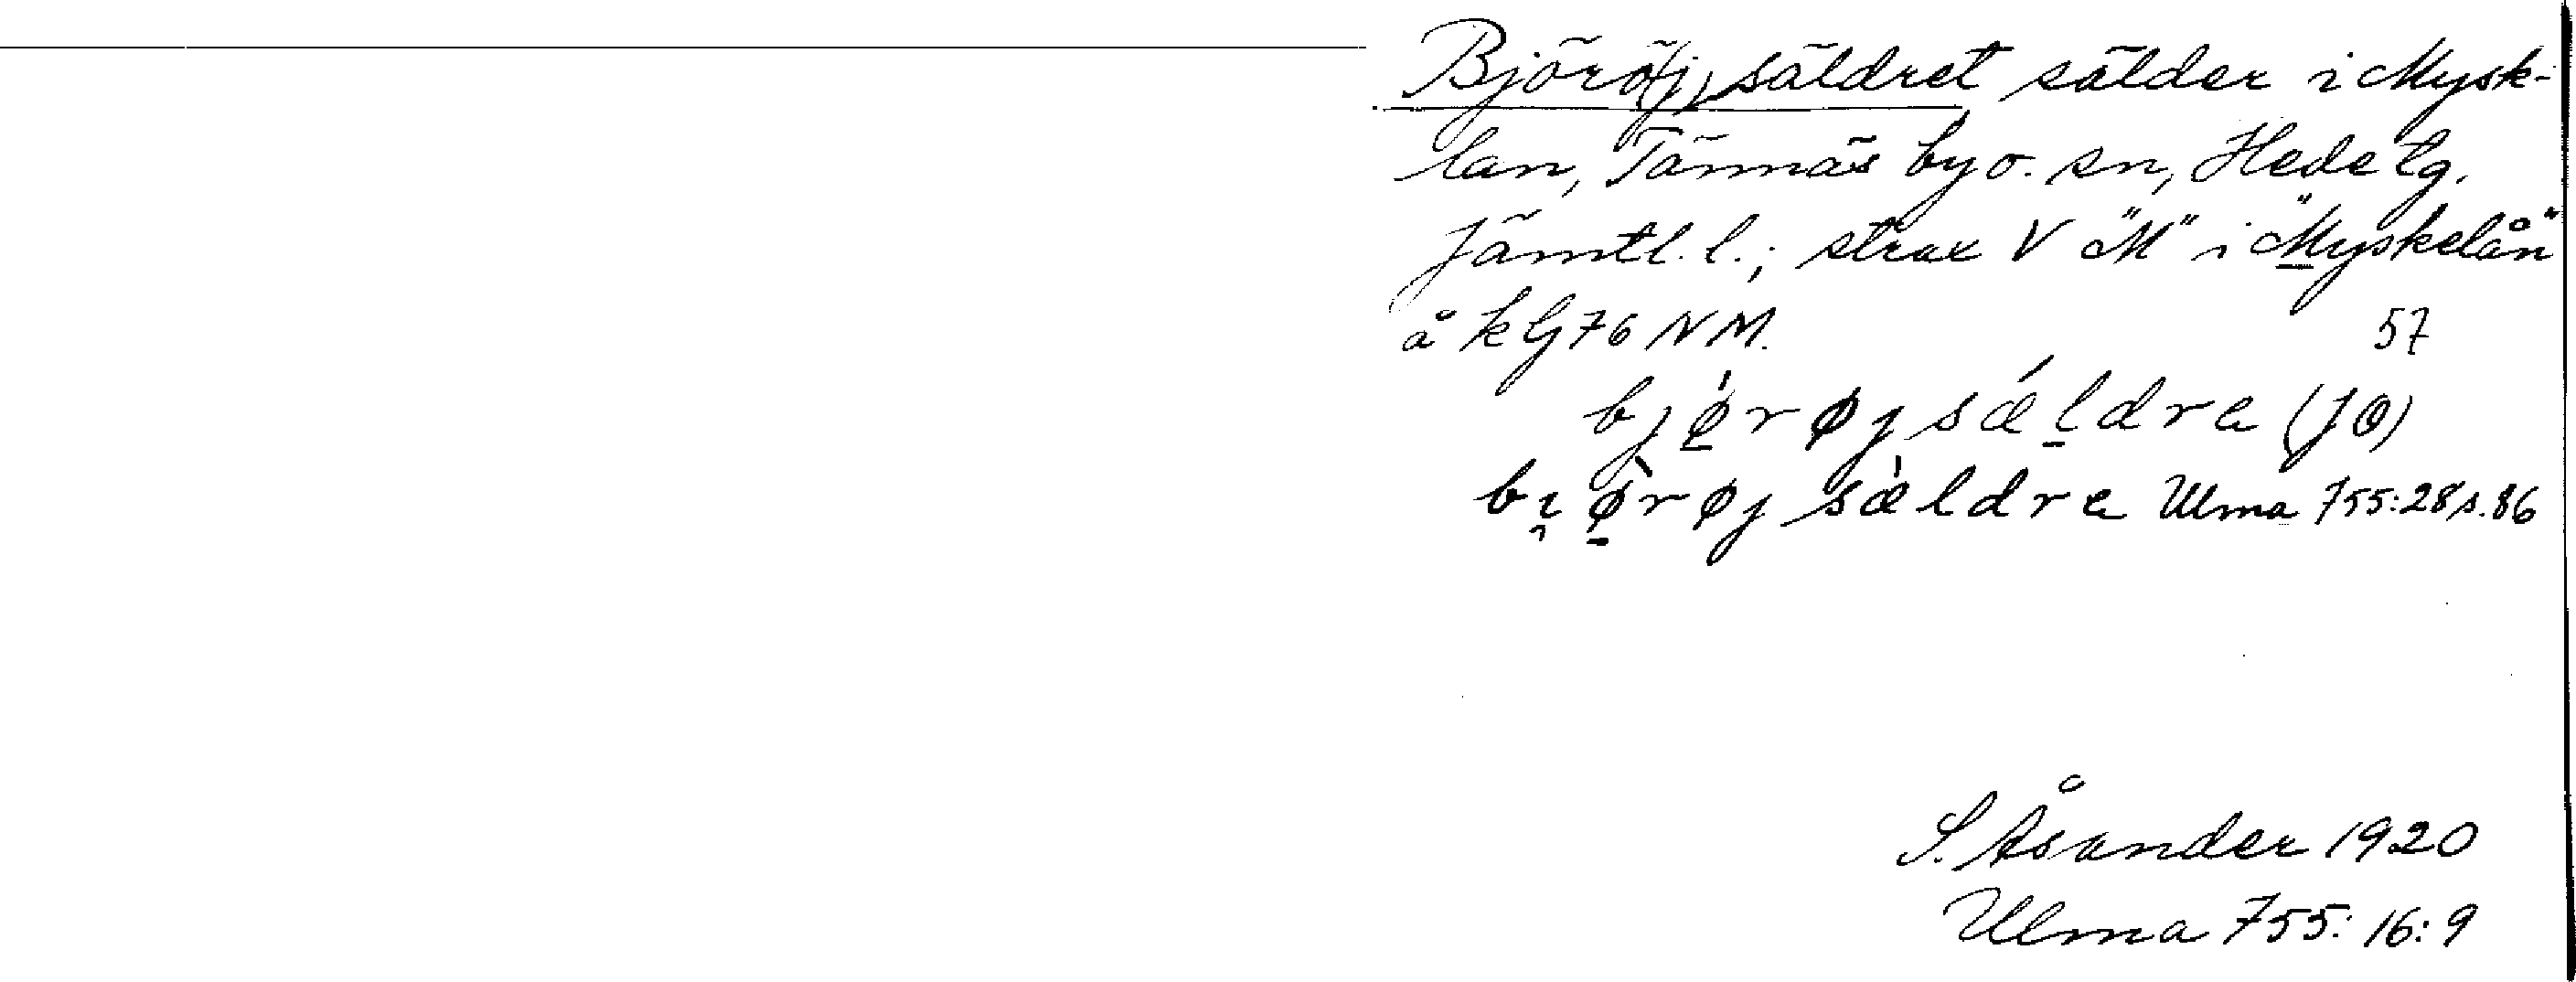 Björö(j)säldret sälder i Mysk-
lan, Tännäs by o. sn, Hede tg.
Jämtl. l.; strax V "M" i "Myskelån"
å kG76 NM. 57
bjǿ̠røjsǽl̠dra (JÖ)
bı̯ø̠̀røjsæ̀ldra Ulma 755:28 s.86
S. Åsander 1920
Ulma 755:16:9